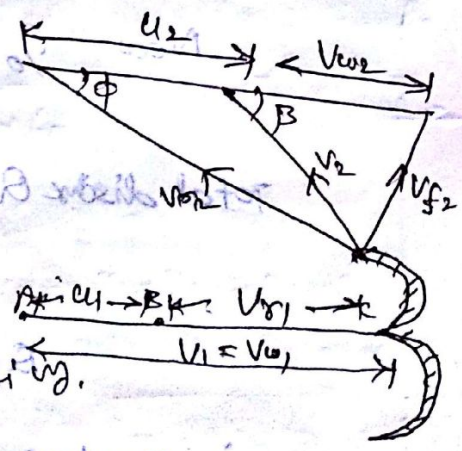 u₂
Vw₂
ϕ
β
Vr₂
V₂
Vf₂
A u₁ B Vr₁
V₁ = Vw₁